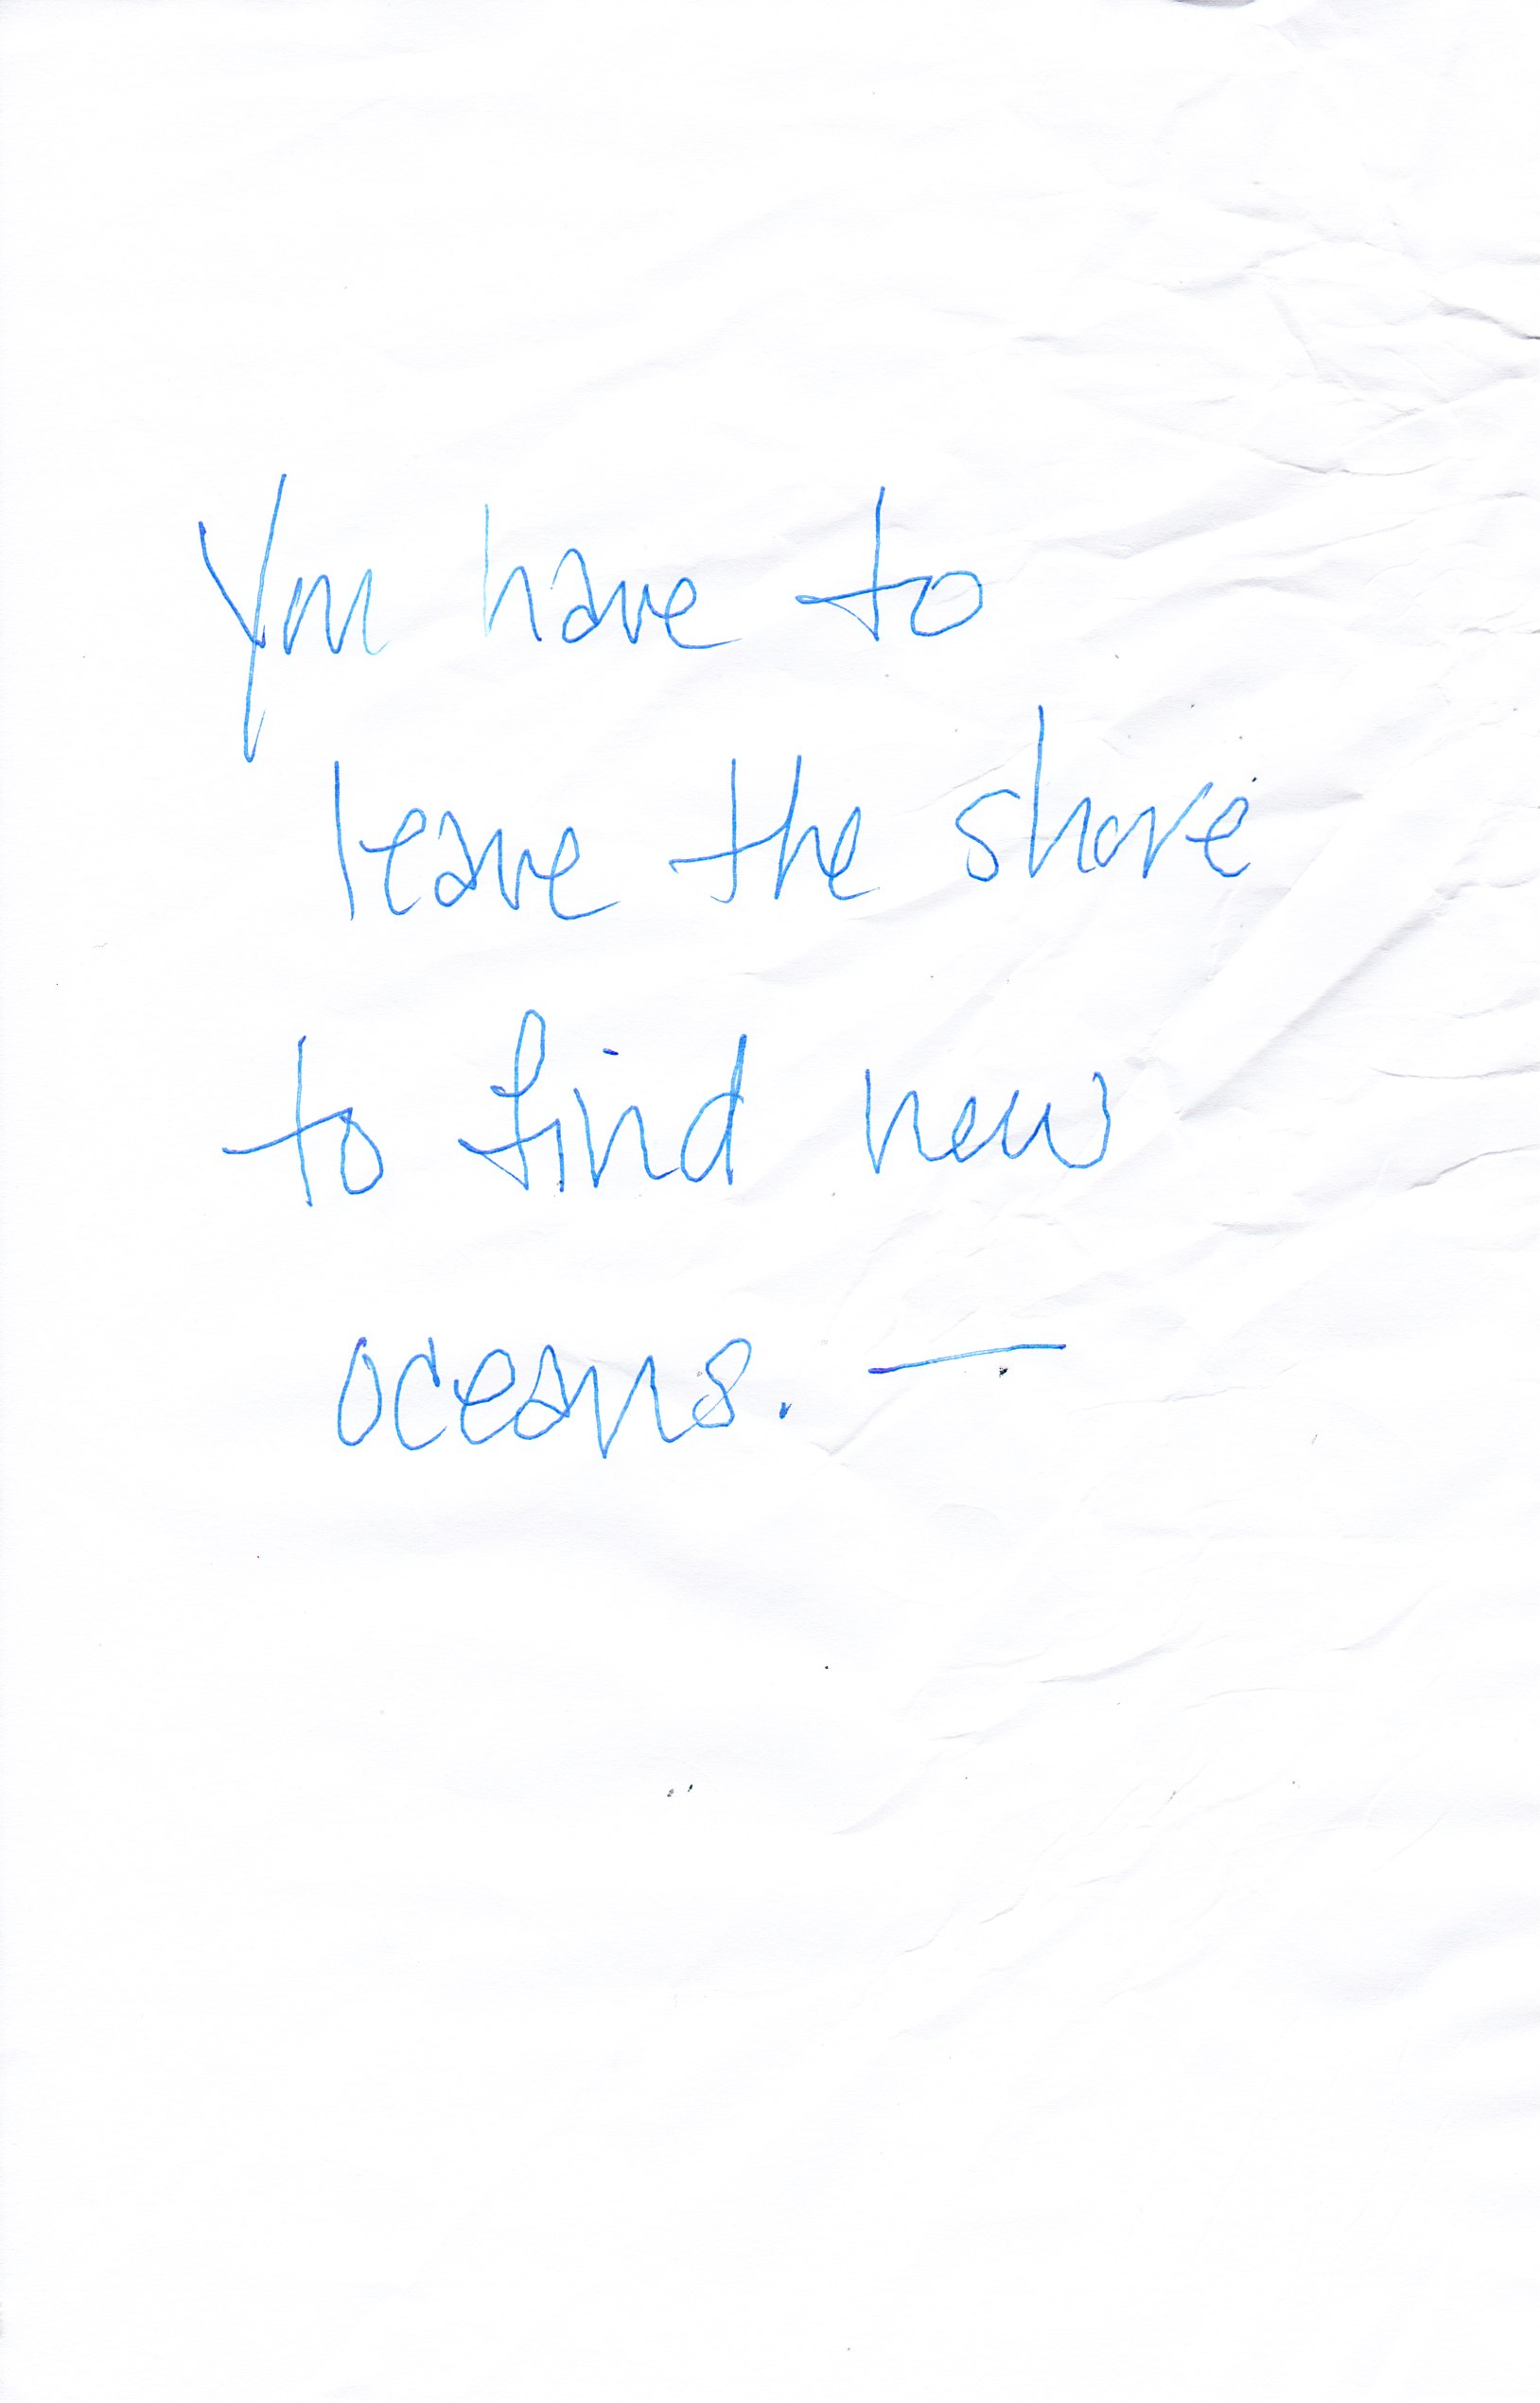 You have to
leave the shore
to find new
oceans. —